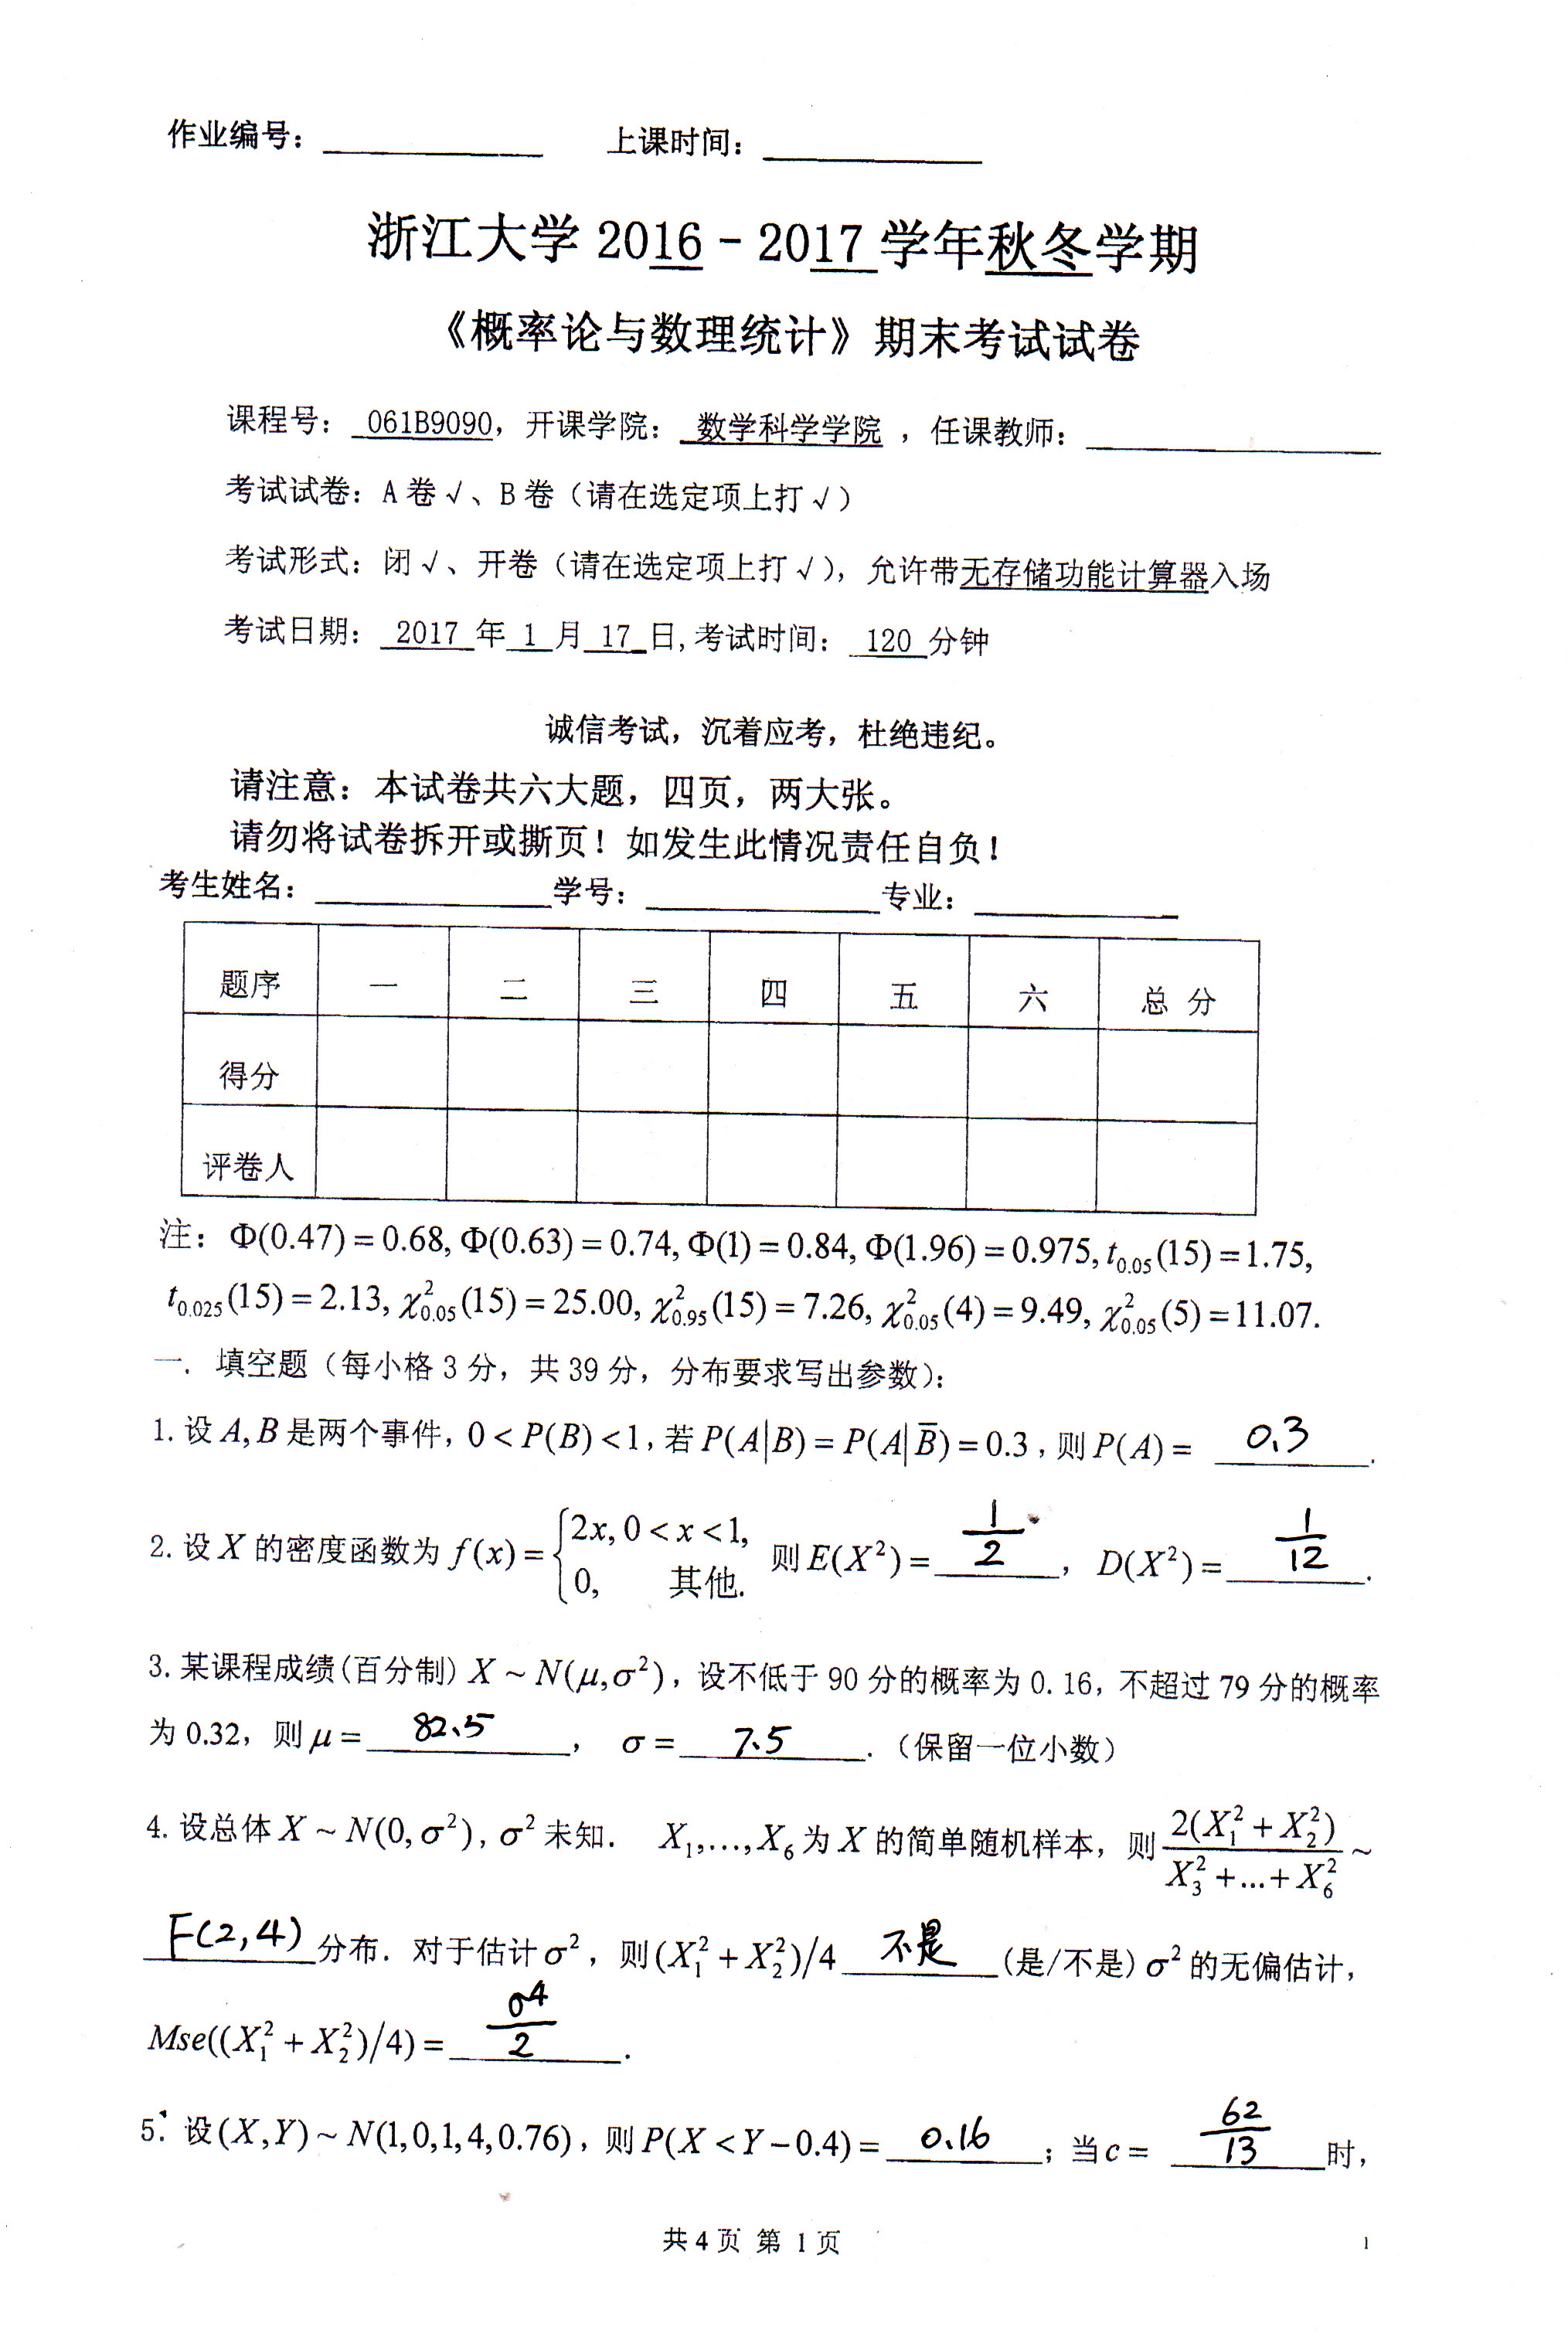 作业编号：__________ 上课时间：__________
浙江大学 2016－2017 学年秋冬学期
《概率论与数理统计》期末考试试卷
课程号： 061B9090，开课学院： 数学科学学院 ，任课教师：__________
考试试卷：A 卷√、B 卷（请在选定项上打√）
考试形式：闭√、开卷（请在选定项上打√），允许带无存储功能计算器入场
考试日期： 2017 年 1 月 17 日,考试时间： 120 分钟
诚信考试，沉着应考，杜绝违纪。
请注意：本试卷共六大题，四页，两大张。
请勿将试卷拆开或撕页！如发生此情况责任自负！
考生姓名：__________学号：__________专业：__________
题序 一 二 三 四 五 六 总 分
得分
评卷人
注：Φ(0.47) = 0.68, Φ(0.63) = 0.74, Φ(1) = 0.84, Φ(1.96) = 0.975, t₀.₀₅(15) = 1.75,
t₀.₀₂₅(15) = 2.13, χ²₀.₀₅(15) = 25.00, χ²₀.₉₅(15) = 7.26, χ²₀.₀₅(4) = 9.49, χ²₀.₀₅(5) = 11.07.
一．填空题（每小格 3 分，共 39 分，分布要求写出参数）：
1. 设 A, B 是两个事件，0 < P(B) < 1，若 P(A|B) = P(A|B̄) = 0.3，则 P(A) = 0.3.
2. 设 X 的密度函数为 f(x) = {2x, 0 < x < 1, 0, 其他. 则 E(X²) = 1/2，D(X²) = 1/12.
3. 某课程成绩(百分制) X ~ N(μ,σ²)，设不低于 90 分的概率为 0.16，不超过 79 分的概率
为 0.32，则 μ = 82.5， σ = 7.5.（保留一位小数）
4. 设总体 X ~ N(0,σ²), σ² 未知． X₁,…,X₆ 为 X 的简单随机样本，则 2(X₁² + X₂²)/(X₃² +...+ X₆²) ~
F(2,4) 分布．对于估计 σ²，则 (X₁² + X₂²)/4 不是 (是/不是) σ² 的无偏估计，
Mse((X₁² + X₂²)/4) = σ⁴/2.
5. 设 (X,Y) ~ N(1,0,1,4,0.76)，则 P(X < Y − 0.4) = 0.16；当 c = 62/13 时，
共 4 页 第 1 页
1